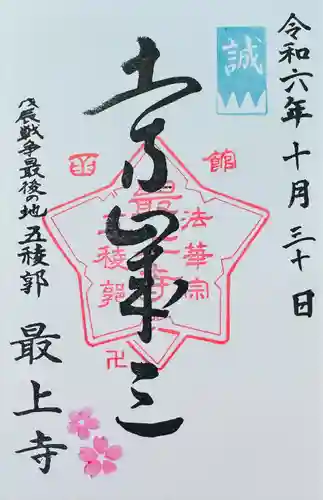 令和六年十月三十日
誠
土方歳三
函館
法華宗
最上寺
五稜郭
卍
戊辰戦争最後の地 五稜郭
最上寺